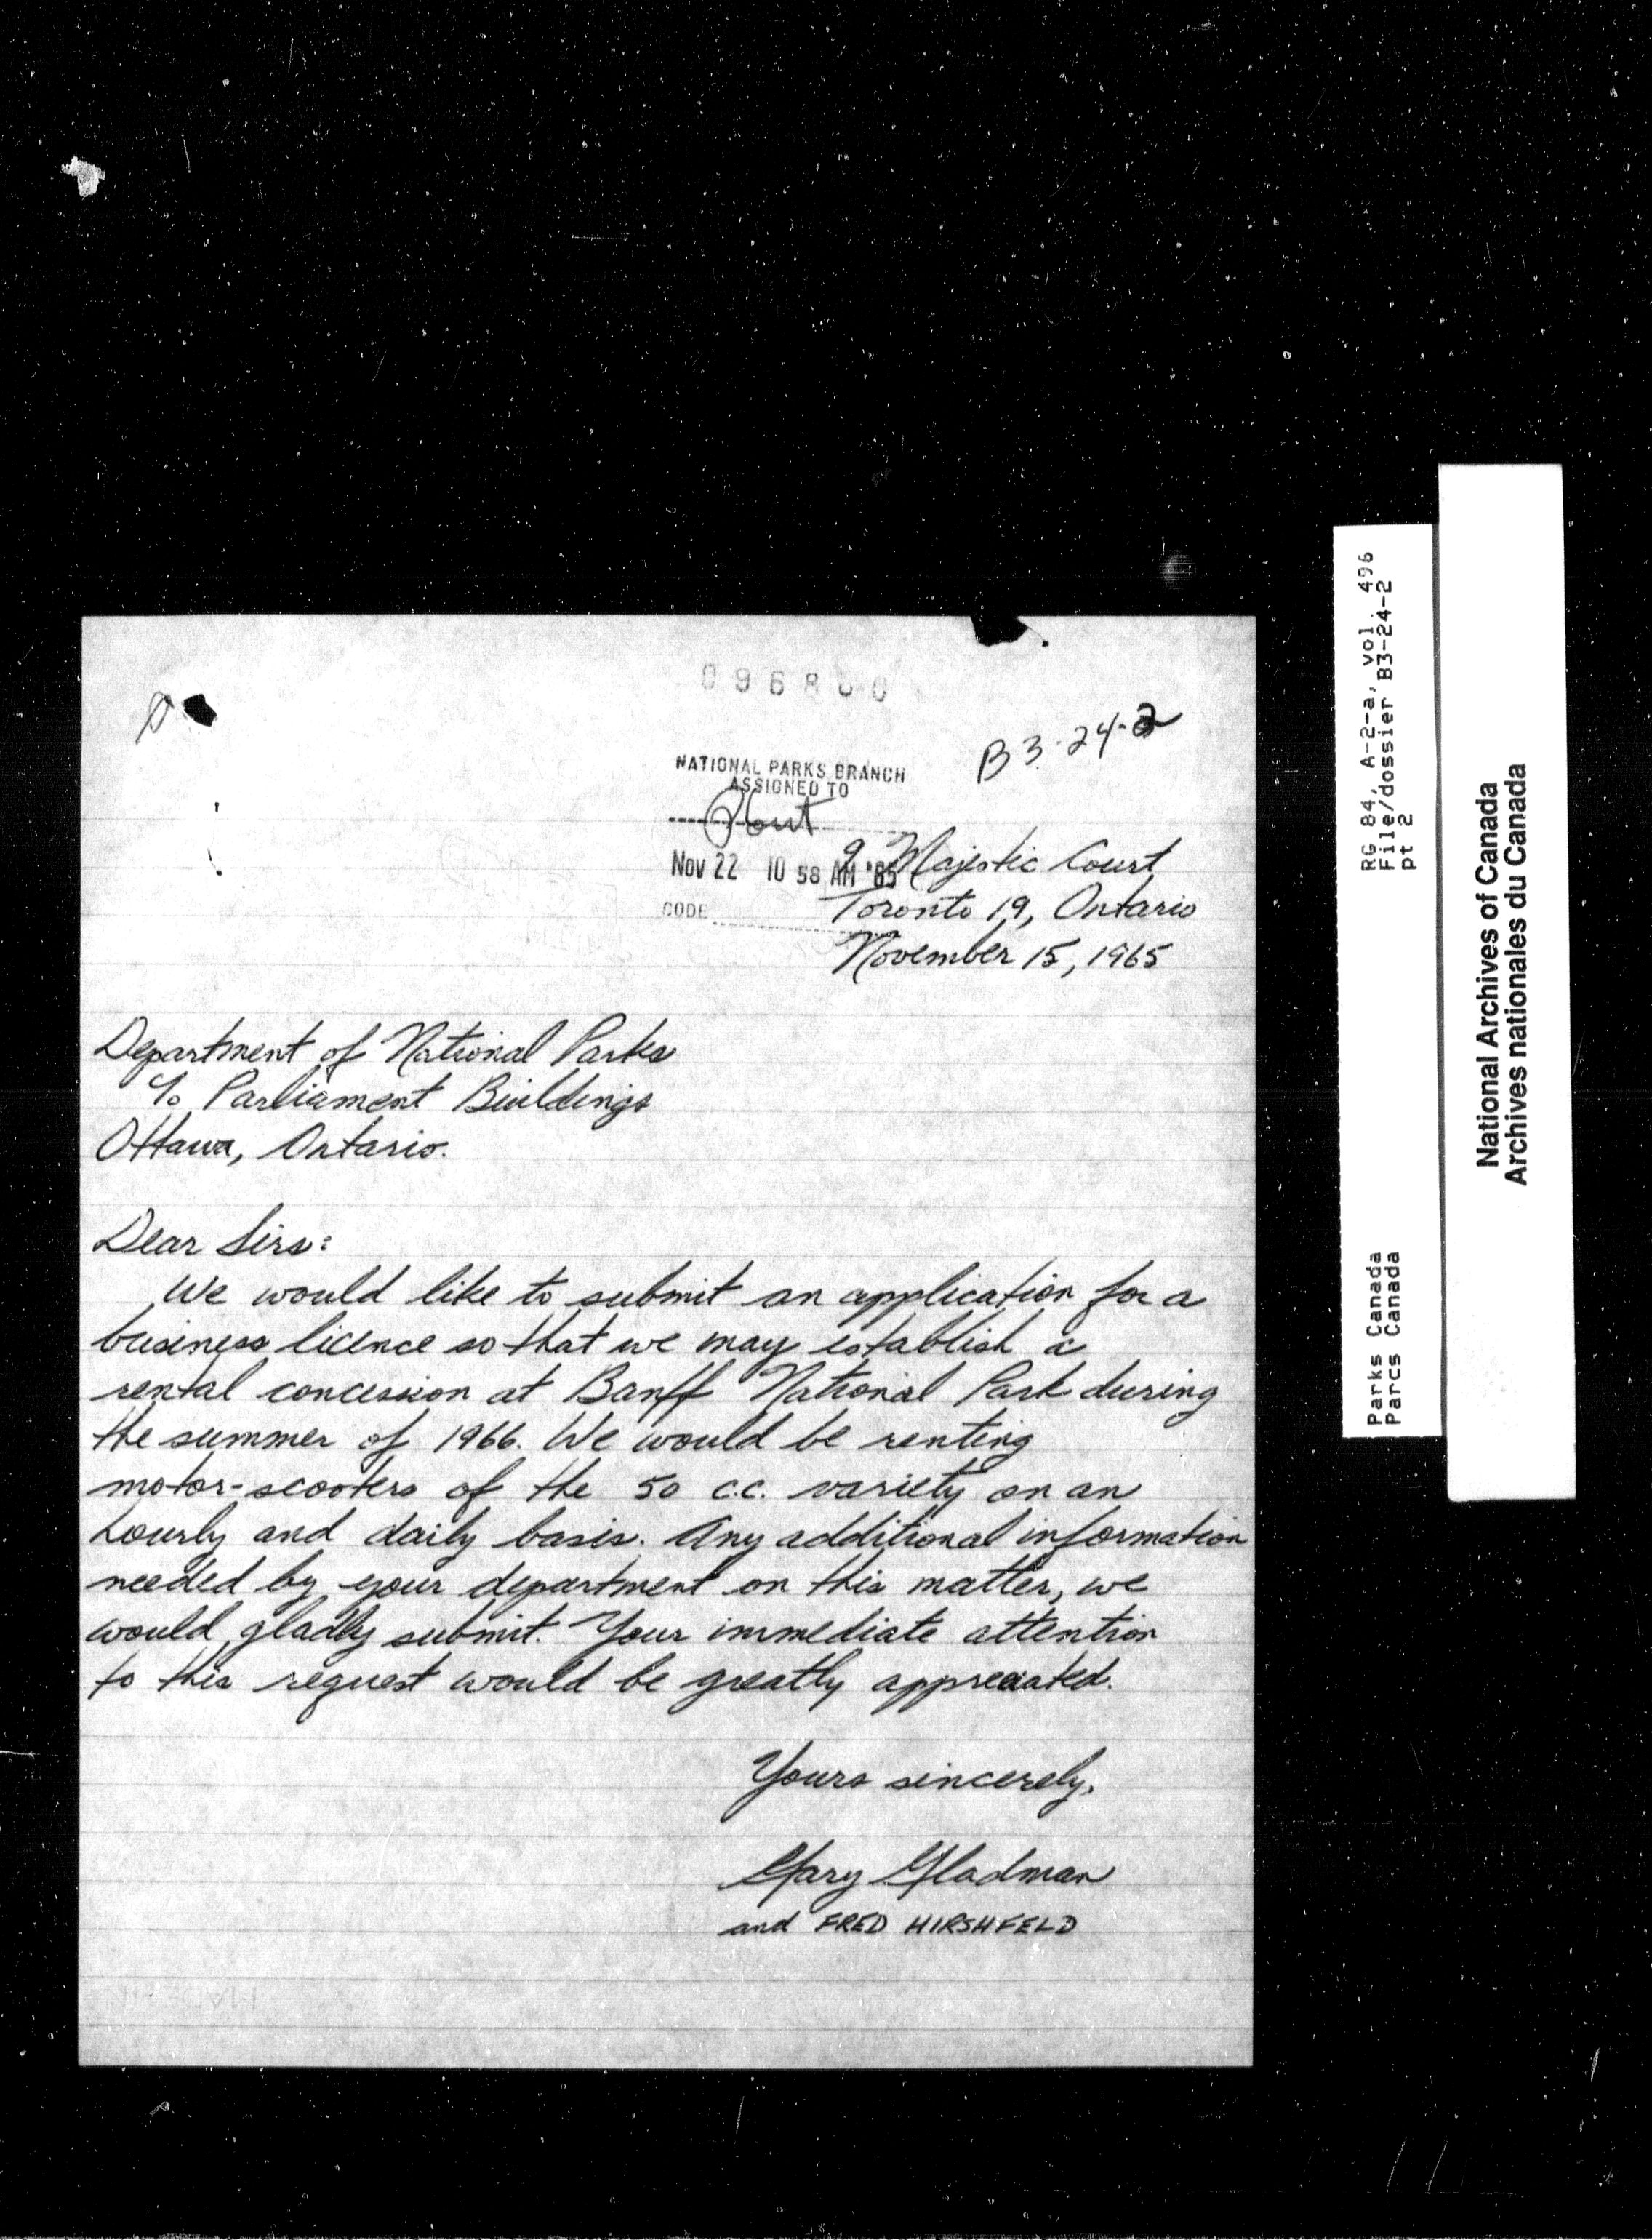 096800
B3-24-2
NATIONAL PARKS BRANCH
ASSIGNED TO
Nov 22 10 58 AM '65
CODE
9 Majestic Court
Toronto 19, Ontario
November 15, 1965
Department of National Parks
c/o Parliament Buildings
Ottawa, Ontario.
Dear Sirs:
We would like to submit an application for a
business licence so that we may establish a
rental concession at Banff National Park during
the summer of 1966. We would be renting
motor-scooters of the 50 c.c. variety on an
hourly and daily basis. Any additional information
needed by your department on this matter, we
would gladly submit. Your immediate attention
to this request would be greatly appreciated.
Yours sincerely,
Gary Gladman
and FRED HIRSHFELD
RG 84, A-2-a, vol. 496
File/dossier B3-24-2
pt 2
Parks Canada
Parcs Canada
National Archives of Canada
Archives nationales du Canada